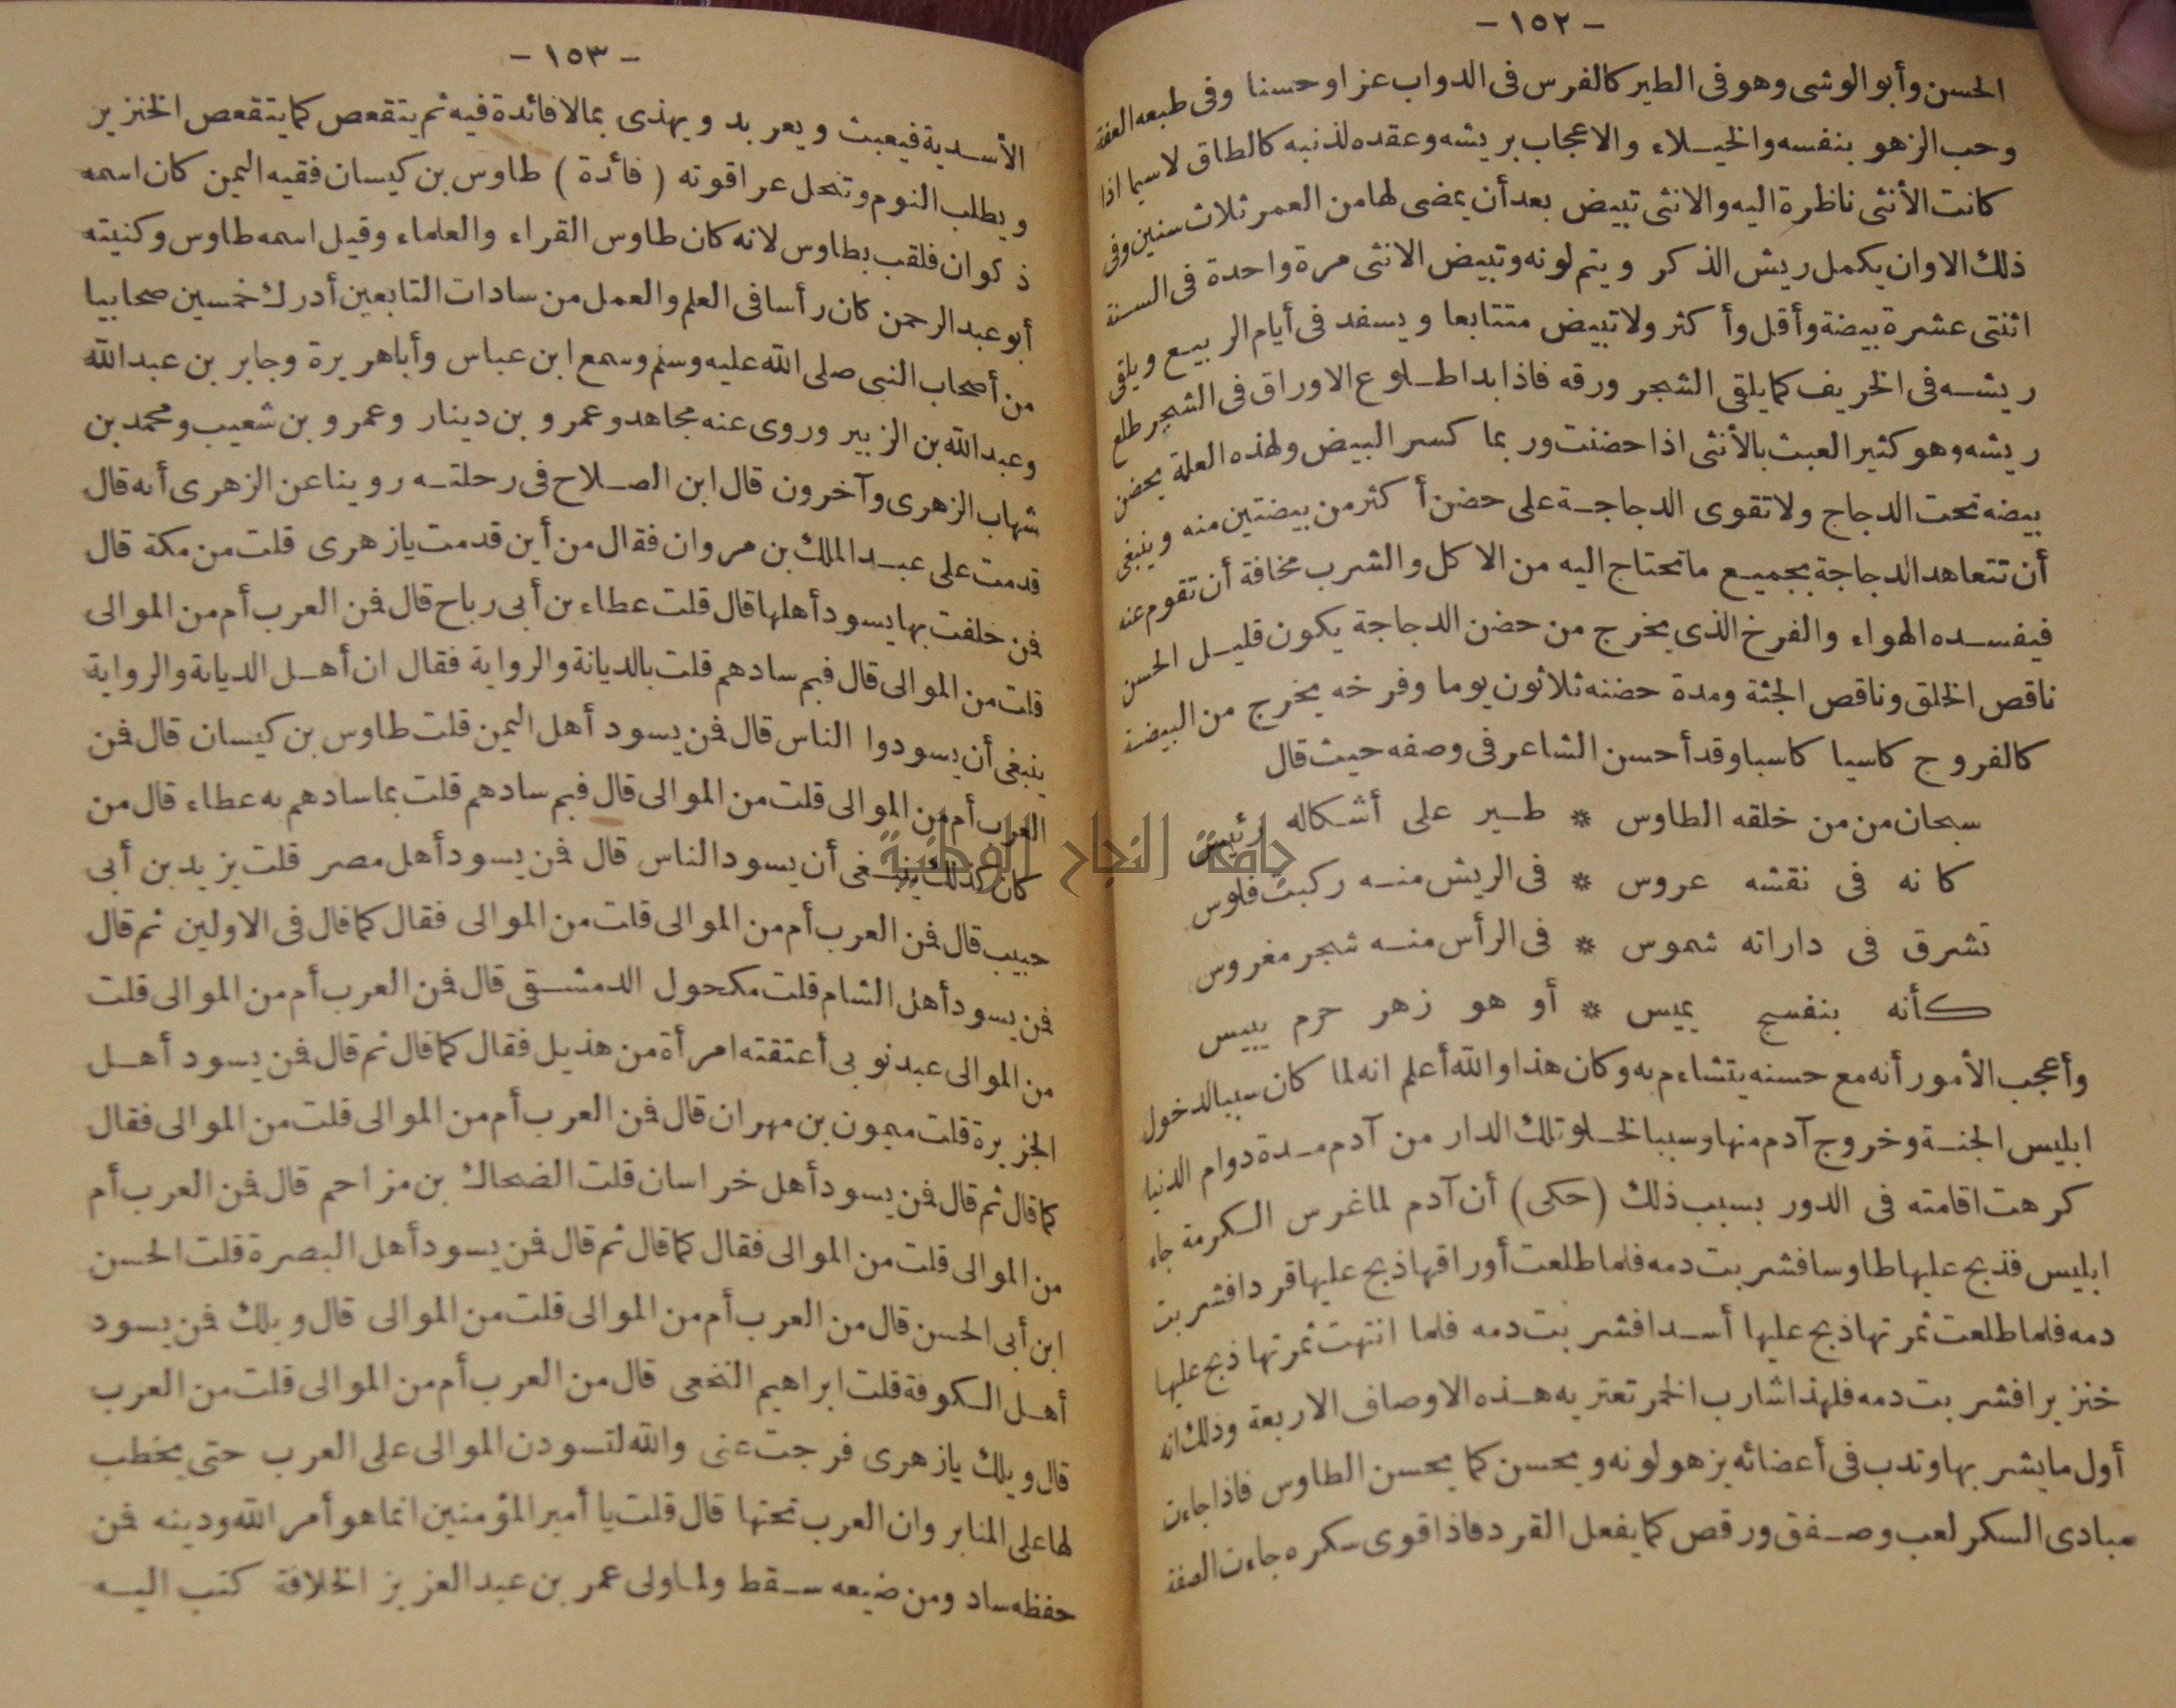 - ١٥٢ -
الحسن وأبو الوشى وهو فى الطير كالفرس فى الدواب عزا وحسنا وفى طبعه العفة
وحب الزهو بنفسه والخيلاء والاعجاب بريشه وعقده لذنبه كالطاق لا سيما اذا
كانت الأنثى ناظرة اليه والانثى تبيض بعد أن يمضى لها من العمر ثلاث سنين وفى
ذلك الاوان يكمل ريش الذكر ويتم لونه وتبيض الانثى مرة واحدة فى السنة
اثنتى عشرة بيضة وأقل وأكثر ولا تبيض متتابعا ويسفد فى أيام الربيع ويلقى
ريشه فى الخريف كما يلقى الشجر ورقه فاذا بدا طلوع الاوراق فى الشجر طلع
ريشه وهو كثير العبث بالأنثى اذا حضنت وربما كسر البيض ولهذه العلة يحضن
بيضه تحت الدجاج ولا تقوى الدجاجة على حضن أكثر من بيضتين منه وينبغى
أن تتعاهد الدجاجة بجميع ما تحتاج اليه من الاكل والشرب مخافة أن تقوم عنه
فيفسده الهواء والفرخ الذى يخرج من حضن الدجاجة يكون قليل الحسن
ناقص الخلق وناقص الجثة ومدة حضنه ثلاثون يوما وفرخه يخرج من البيضة
كالفروج كاسيا كاسبا وقد أحسن الشاعر فى وصفه حيث قال
سبحان من من خلقه الطاوس * طير على أشكاله رئيس
كانه فى نقشه عروس * فى الريش منه ركبت فلوس
تشرق فى داراته شموس * فى الرأس منه شجر مغروس
كأنه بنفسج يميس * أو هو زهر حرم يبيس
وأعجب الأمور أنه مع حسنه يتشاءم به وكان هذا والله أعلم انه لما كان سببا لدخول
ابليس الجنة وخروج آدم منها وسببا لخلو تلك الدار من آدم مدة دوام الدنيا
كرهت اقامته فى الدور بسبب ذلك (حكى) أن آدم لما غرس الكرمة جاء
ابليس فذبح عليها طاوسا فشربت دمه فلما طلعت أوراقها ذبح عليها قردا فشربت
دمه فلما طلعت ثمرتها ذبح عليها أسدا فشربت دمه فلما انتهت ثمرتها ذبح عليها
خنزيرا فشربت دمه فلهذا شارب الخمر تعتريه هذه الاوصاف الاربعة وذلك انه
أول ما يشربها وتدب فى أعضائه يزهو لونه ويحسن كما يحسن الطاوس فاذا جاءت
مبادى السكر لعب وصفق ورقص كما يفعل القرد فاذا قوى سكره جاءت الصفة
- ١٥٣ -
الأسدية فيعبث ويعربد ويهذى بما لا فائدة فيه ثم يتقعص كما يتقعص الخنزير
ويطلب النوم وتنحل عرا قوته (فائدة) طاوس بن كيسان فقيه اليمن كان اسمه
ذكوان فلقب بطاوس لانه كان طاوس القراء والعلماء وقيل اسمه طاوس وكنيته
أبو عبد الرحمن كان رأسا فى العلم والعمل من سادات التابعين أدرك خمسين صحابيا
من أصحاب النبى صلى الله عليه وسلم وسمع ابن عباس وأبا هريرة وجابر بن عبد الله
وعبد الله بن الزبير وروى عنه مجاهد وعمرو بن دينار وعمرو بن شعيب ومحمد بن
شهاب الزهرى وآخرون قال ابن الصلاح فى رحلته روينا عن الزهرى أنه قال
قدمت على عبد الملك بن مروان فقال من أين قدمت يا زهرى قلت من مكة قال
فمن خلفت بها يسود أهلها قال قلت عطاء بن أبى رباح قال فمن العرب أم من الموالى
قلت من الموالى قال فبم سادهم قلت بالديانة والرواية فقال ان أهل الديانة والرواية
ينبغى أن يسودوا الناس قال فمن يسود أهل اليمن قلت طاوس بن كيسان قال فمن
العرب أم من الموالى قلت من الموالى قال فبم سادهم قلت بما سادهم به عطاء قال من
كان كذلك ينبغى أن يسود الناس قال فمن يسود أهل مصر قلت يزيد بن أبى
حبيب قال فمن العرب أم من الموالى قلت من الموالى فقال كما قال فى الاولين ثم قال
فمن يسود أهل الشام قلت مكحول الدمشقى قال فمن العرب أم من الموالى قلت
من الموالى عبد نوبى أعتقته امرأة من هذيل فقال كما قال ثم قال فمن يسود أهل
الجزيرة قلت ميمون بن مهران قال فمن العرب أم من الموالى قلت من الموالى فقال
كما قال ثم قال فمن يسود أهل خراسان قلت الضحاك بن مزاحم قال فمن العرب أم
من الموالى قلت من الموالى فقال كما قال ثم قال فمن يسود أهل البصرة قلت الحسن
ابن أبى الحسن قال من العرب أم من الموالى قلت من الموالى قال ويلك فمن يسود
أهل الكوفة قلت ابراهيم النخعى قال من العرب أم من الموالى قلت من العرب
قال ويلك يا زهرى فرجت عنى والله لتسودن الموالى على العرب حتى يخطب
لها على المنابر وان العرب تحتها قال قلت يا أمير المؤمنين انما هو أمر الله ودينه فمن
حفظه ساد ومن ضيعه سقط ولما ولى عمر بن عبد العزيز الخلافة كتب اليه
جامعة النجاح الوطنية